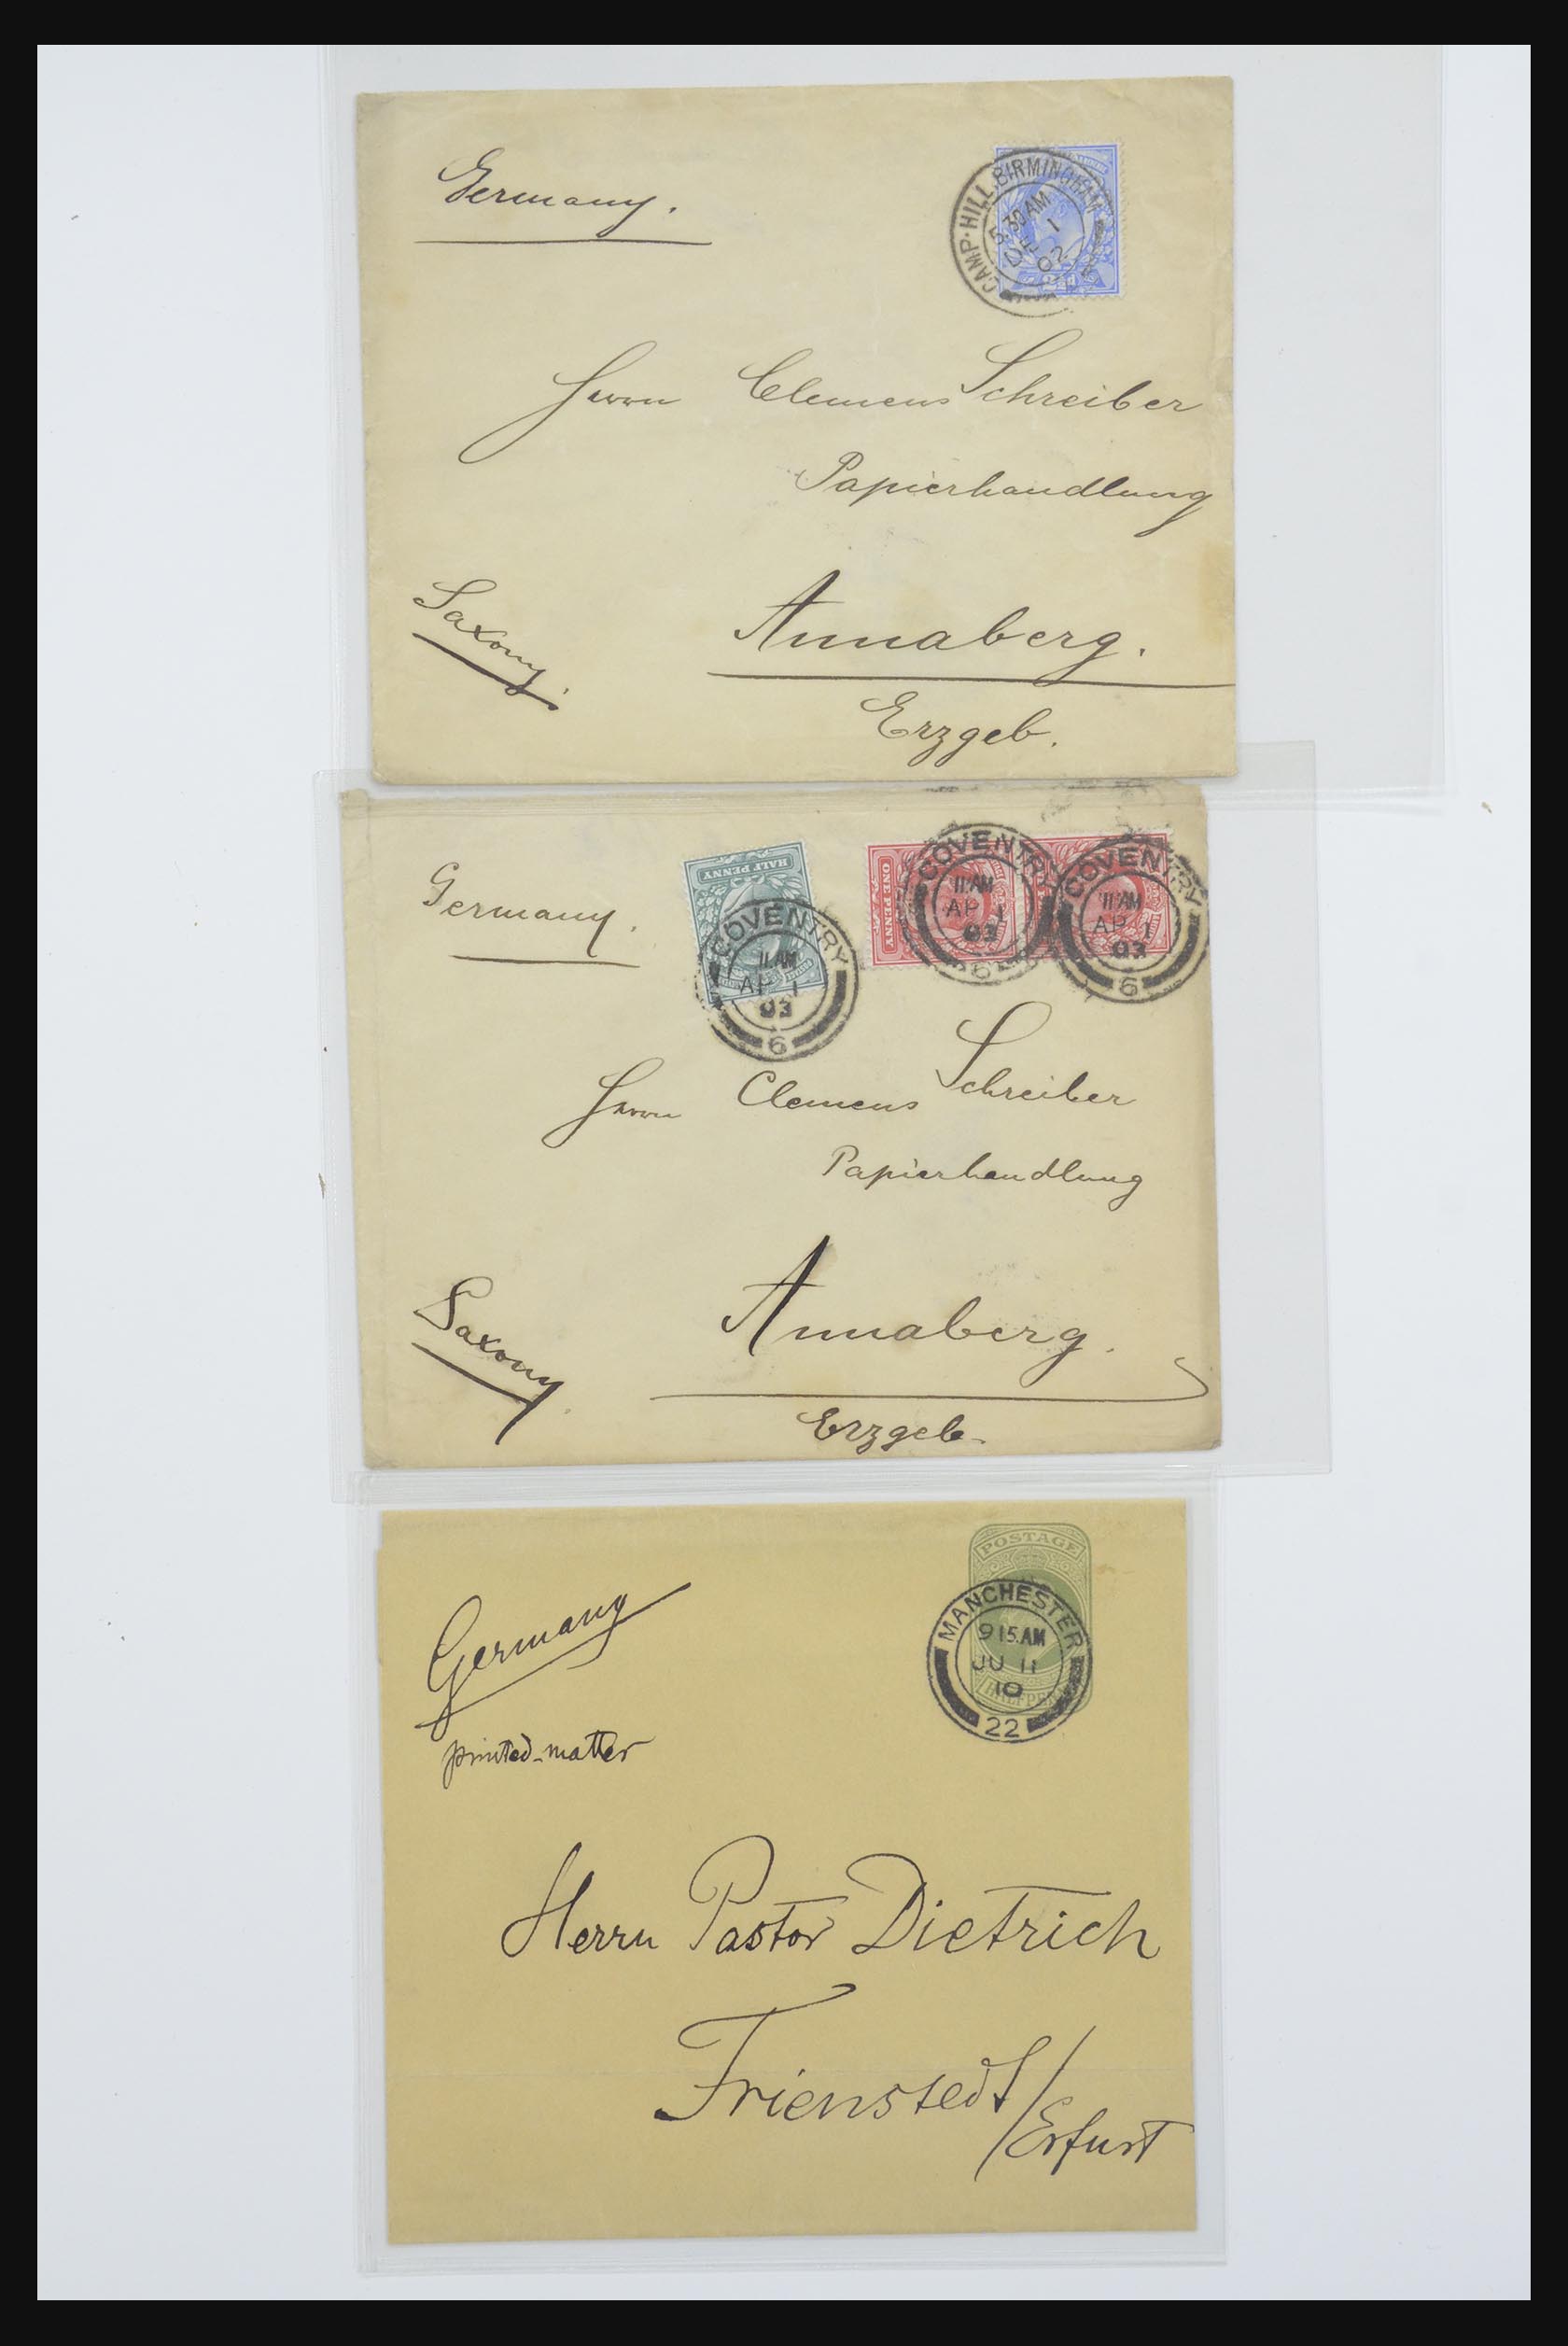 Germany.
CAMP·HILL.BIRMINGHAM
5.30AM
DE 1
02
Herrn Clemens Schreiber
Papierhandlung
Saxony.
Annaberg.
Erzgeb.
HALF PENNY
ONE PENNY
COVENTRY
11AM
AP 1
03
6
COVENTRY
11AM
AP 1
03
6
COVENTRY
11AM
AP 1
03
6
Germany.
Herrn Clemens Schreiber
Papierhandlung
Saxony.
Annaberg.
Erzgeb.
POSTAGE
MANCHESTER
9 15.AM
JU 11
10
22
Germany
printed-matter
Herrn Pastor Dietrich
Frienstedt/
Erfurt